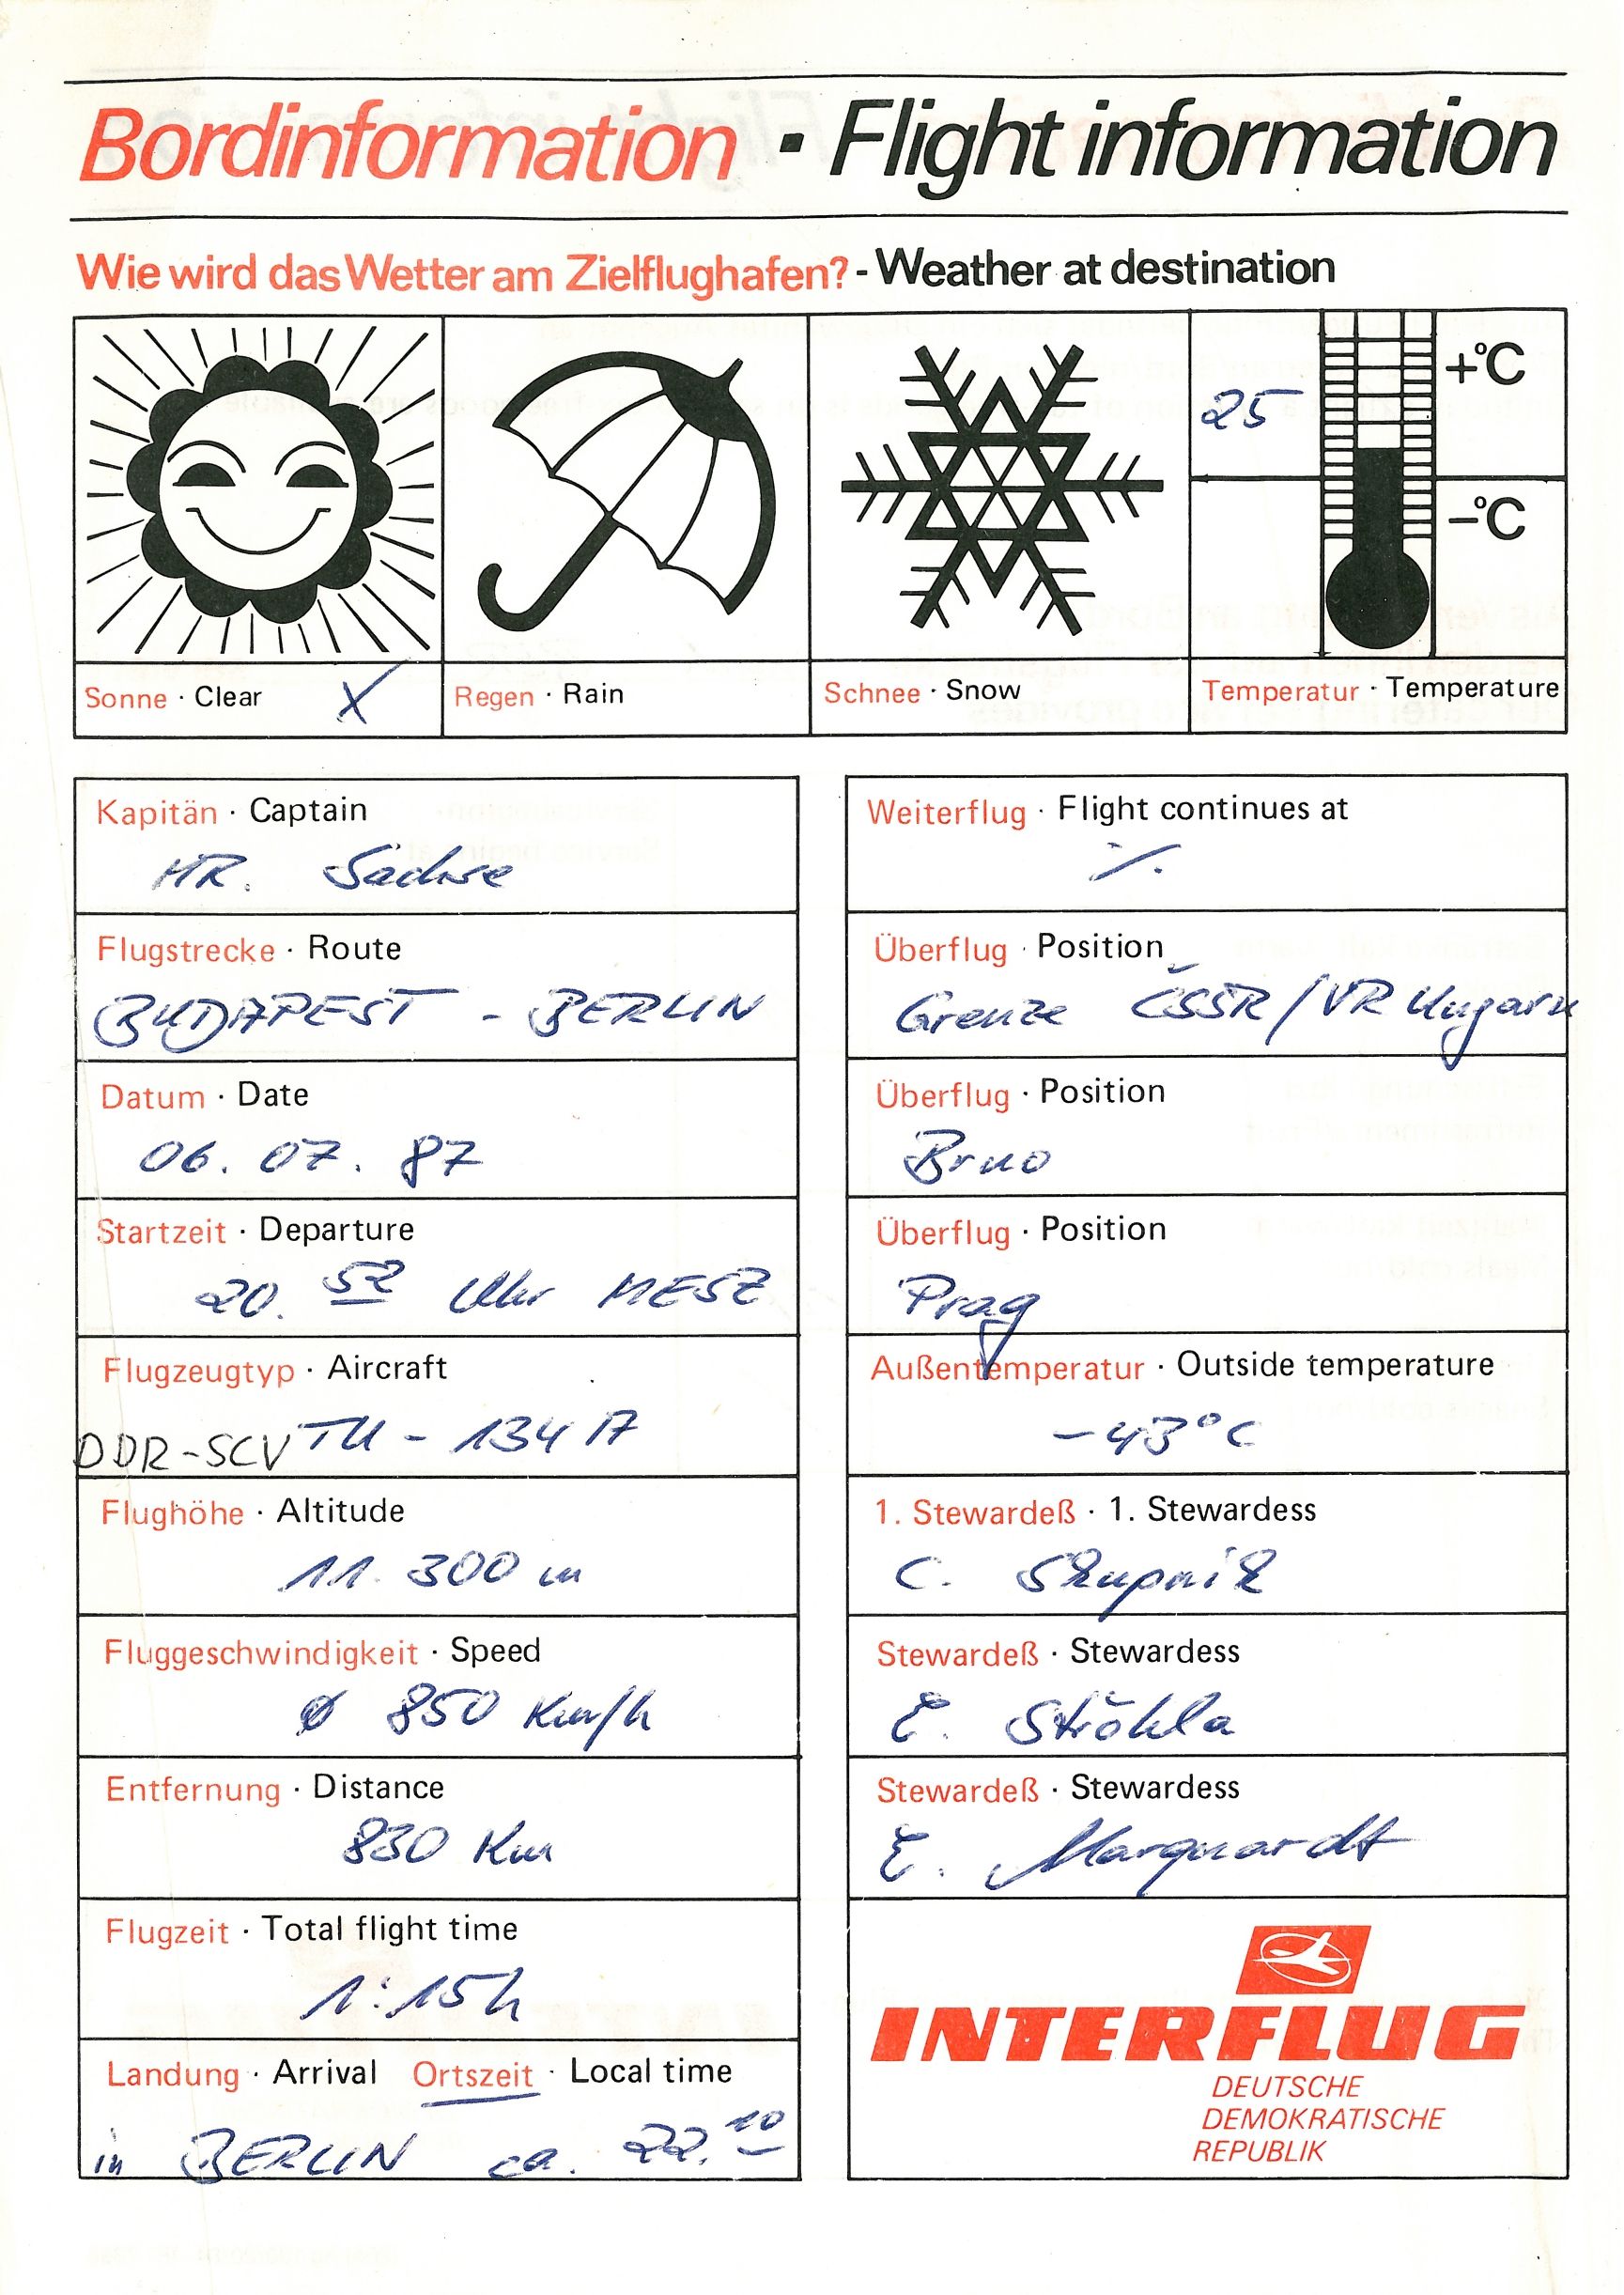 Bordinformation · Flight information
Wie wird das Wetter am Zielflughafen? - Weather at destination
25
+°C
-°C
Sonne · Clear X
Regen · Rain
Schnee · Snow
Temperatur · Temperature
Kapitän · Captain
HR. Sachse
Flugstrecke · Route
BUDAPEST - BERLIN
Datum · Date
06. 07. 87
Startzeit · Departure
20. 52 Uhr MESZ
Flugzeugtyp · Aircraft
DDR-SCV TU - 134 A
Flughöhe · Altitude
11. 300 m
Fluggeschwindigkeit · Speed
ø 850 Km/h
Entfernung · Distance
830 Km
Flugzeit · Total flight time
1:15h
Landung · Arrival Ortszeit · Local time
in BERLIN ca. 22.10
Weiterflug · Flight continues at
./.
Überflug · Position
Grenze ČSSR/VR Ungarn
Überflug · Position
Brno
Überflug · Position
Prag
Außentemperatur · Outside temperature
-43°C
1. Stewardeß · 1. Stewardess
C. Skupnik
Stewardeß · Stewardess
E. Ströhla
Stewardeß · Stewardess
E. Marquardt
INTERFLUG
DEUTSCHE
DEMOKRATISCHE
REPUBLIK